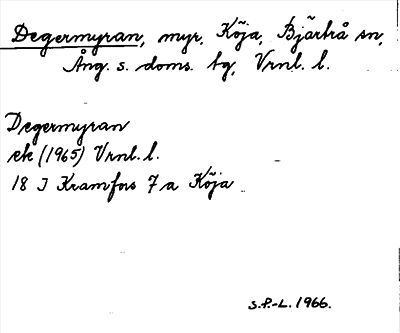 Degermyran, myr, Köja, Bjärtrå sn,
Ång. s. doms. tg, Vrnl. l.
Degermyran
ek (1965) Vrnl. l.
18 J Kramfors 7 a Köja
S.P.-L. 1966.